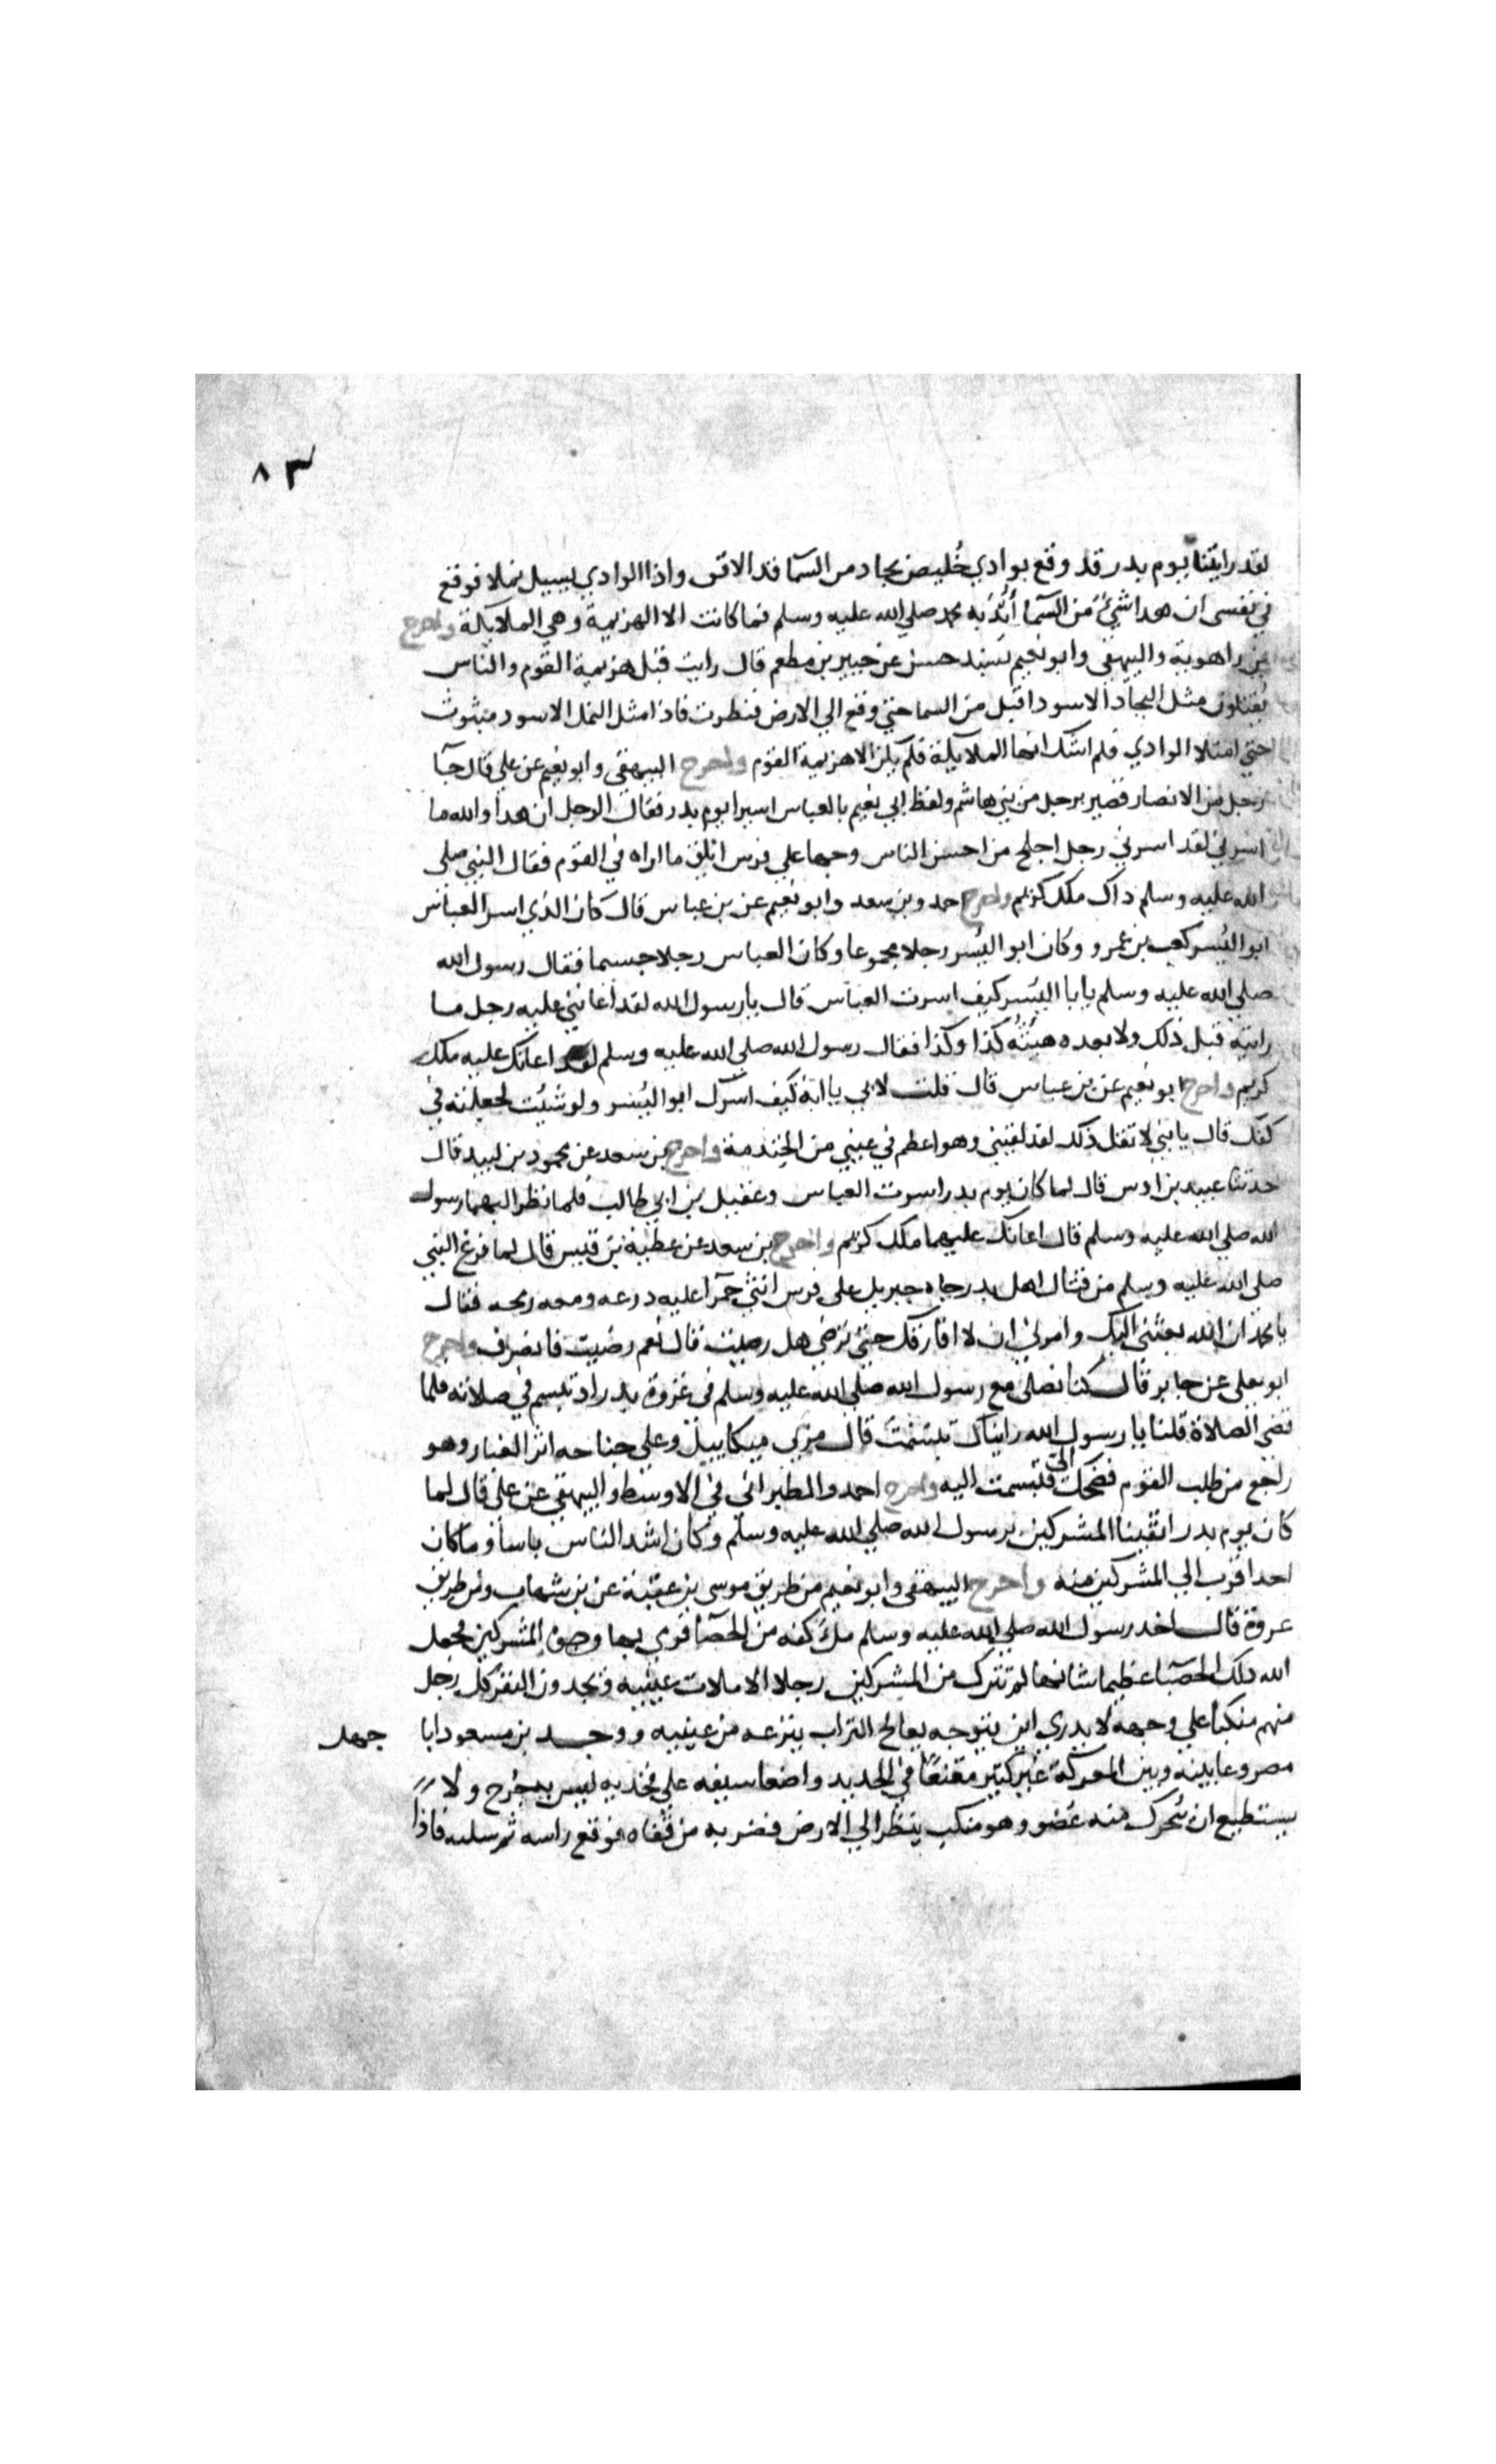 ٨٣
لقد رايتنا يوم بدر قد وقع بوادي خُليص بجاد من السما قد الافق واذا الوادي يسيل نملا فوقع
في نفسي ان هدا شئ من السمآ أُيّدَ به محمد صلي الله عليه وسلم فما كانت الا الهزيمة وهي الملايكة واخرج
بن راهوية والبيهقي وابو نعيم بسند حسن عن جبير بن مطعم قال رايت قبل هزيمة القوم والناس
يُقتتلون مثل البجاد الاسود اقبل من السما حتي وقع الي الارض فنظرت فاذا مثل النمل الاسود مبثوث
حتي امتلا الوادي فلم اشك انها الملايكة فلم يكن الا هزيمة القوم واخرج البيهقي وابو نعيم عن علي قال جآ
رجل من الانصار قصير برجل من بني هاشم ولفظ ابي نعيم بالعباس اسيرا يوم بدر فقال الرجل ان هدا والله ما
اسرني لقد اسرني رجل اجلح من احسن الناس وجها علي فرس ابلق ما اراه في القوم فقال النبي صلي
الله عليه وسلم داك ملك كريم واخرج احمد وبن سعد وابو نعيم عن بن عباس قال كان الذي اسر العباس
ابو اليُسر كعب بن عمرو وكان ابو اليُسر رجلا مجموعا وكان العباس رجلا جسيما فقال رسول الله
صلي الله عليه وسلم يابا اليُسر كيف اسرت العباس قال يا رسول الله لقد اعانني عليه رجل ما
رايته قبل ذلك ولا بعده هيئته كذا وكذا فقال رسول الله صلي الله عليه وسلم لقد اعانك عليه ملك
كريم واخرج ابو نعيم عن بن عباس قال قلت لابي يا ابة كيف اسرك ابو اليُسر ولو شيُت لجعلته في
كفك قال يا بني لا تقل ذلك لقد لقيني وهو اعظم في عيني من الخندمة واخرج بن سعد عن محمود بن لبيد قال
حدثنا عبيد بن اوس قال لما كان يوم بدر اسرت العباس وعقيل بن ابي طالب فلما نظر اليهما رسول
الله صلي الله عليه وسلم قال اعانك عليهما ملك كريم واخرج بن سعد عن عطية بن قيس قال لما فرغ النبي
صلي الله عليه وسلم من قتال اهل بدر جاه جبريل علي فرس انثي حمرا عليه درعه ومعه رمحه فقال
يا محمد ان الله بعثني اليك وامرني ان لا افارقك حتي ترضي هل رضيت قال نعم رضيت فانصرف واخرج
ابو يعلي عن جابر قال كنا نصلي مع رسول الله صلي الله عليه وسلم في غزوة بدر اد تبسم في صلاته فلما
قضي الصلاة قلنا يا رسول الله رايناك تبسمت قال مر بي ميكاييل وعلي جناحه اثر الغبار وهو
راجع من طلب القوم فضحك الي فتبسمت اليه واخرج احمد والطبراني في الاوسط والبيهقي عن علي قال لما
كان يوم بدر اتقينا المشركين برسول الله صلي الله عليه وسلم وكان اشد الناس باسا وما كان
احد اقرب الي المشركين منه واخرج البيهقي وابو نعيم من طريق موسي بن عقبة عن بن شهاب ومن طريق
عروة قال اخد رسول الله صلي الله عليه وسلم ملَ كفه من الحصبا فرمي بها وجوه المشركين فجعل
الله دلك الحصبا عظيما شانها لم تترك من المشركين رجلا الا ملات عينيه ويجدون النفر كل رجل
منهم منكبا علي وجهه لا يدري اين يتوجه يعالج التراب ينزعه من عينيه ووجد بن مسعود ابا جهل
مصروعا بينه وبين المعركة غير كثير مقنعًا في الحديد واضعا سيفه علي فخديه ليس به جُرح ولا
يستطيع ان يُحرك منه عُضو وهو منكب ينظر الي الارض فضربه من قفاه فوقع راسه ثم سلبه فاذا